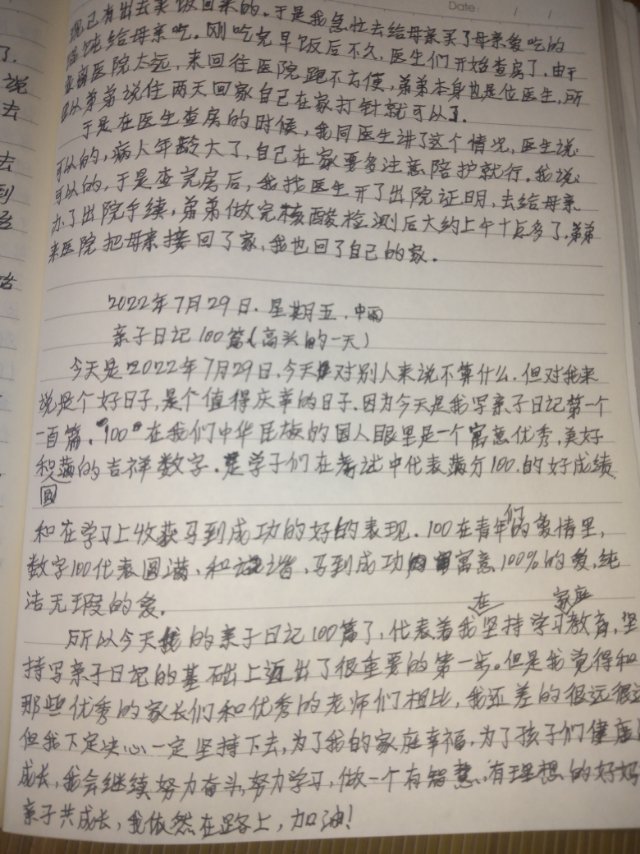 现已有出去买饭回来的。于是我急忙去给母亲买了母亲爱吃的
馄饨给母亲吃。刚吃完早饭后不久,医生们开始查房了,由于
医院太远,来回往医院跑不方便,弟弟本身也是位医生,所
以弟弟说住两天回家自己在家打针就可以了。
于是在医生查房的时候,我同医生讲了这个情况,医生说:
可以的,病人年龄大了,自己在家要多注意陪护就行。我说:
可以的,于是查完房后,我找医生开了出院证明,去给母亲
办了出院手续,弟弟做完核酸检测后大约上午十点多了,弟弟
来医院把母亲接回了家,我也回了自己的家。
2022年7月29日.星期五.中雨
亲子日记100篇(高兴的一天)
今天是2022年7月29日,今天对别人来说不算什么.但对我来
说是个好日子,是个值得庆幸的日子.因为今天是我写亲子日记第一个
一百篇."100"在我们中华民族的国人眼里是一个寓意优秀,美好
和圆满的吉祥数字.是学子们在考试中代表满分100.的好成绩
和在学习上收获马到成功的好的表现.100在青年们的爱情里,
数字100代表圆满、和谐、马到成功寓意100%的爱,纯
洁无瑕的爱.
所以今天我的亲子日记100篇了,代表着我在坚持学习家庭教育,坚
持写亲子日记的基础上迈出了很重要的第一步。但是我觉得和
那些优秀的家长们和优秀的老师们相比,我还差的很远很远
但我下定决心一定坚持下去,为了我的家庭幸福,为了孩子们健康
成长,我会继续努力奋斗,努力学习,做一个有智慧、有理想的好妈
亲子共成长,我依然在路上,加油!
Date